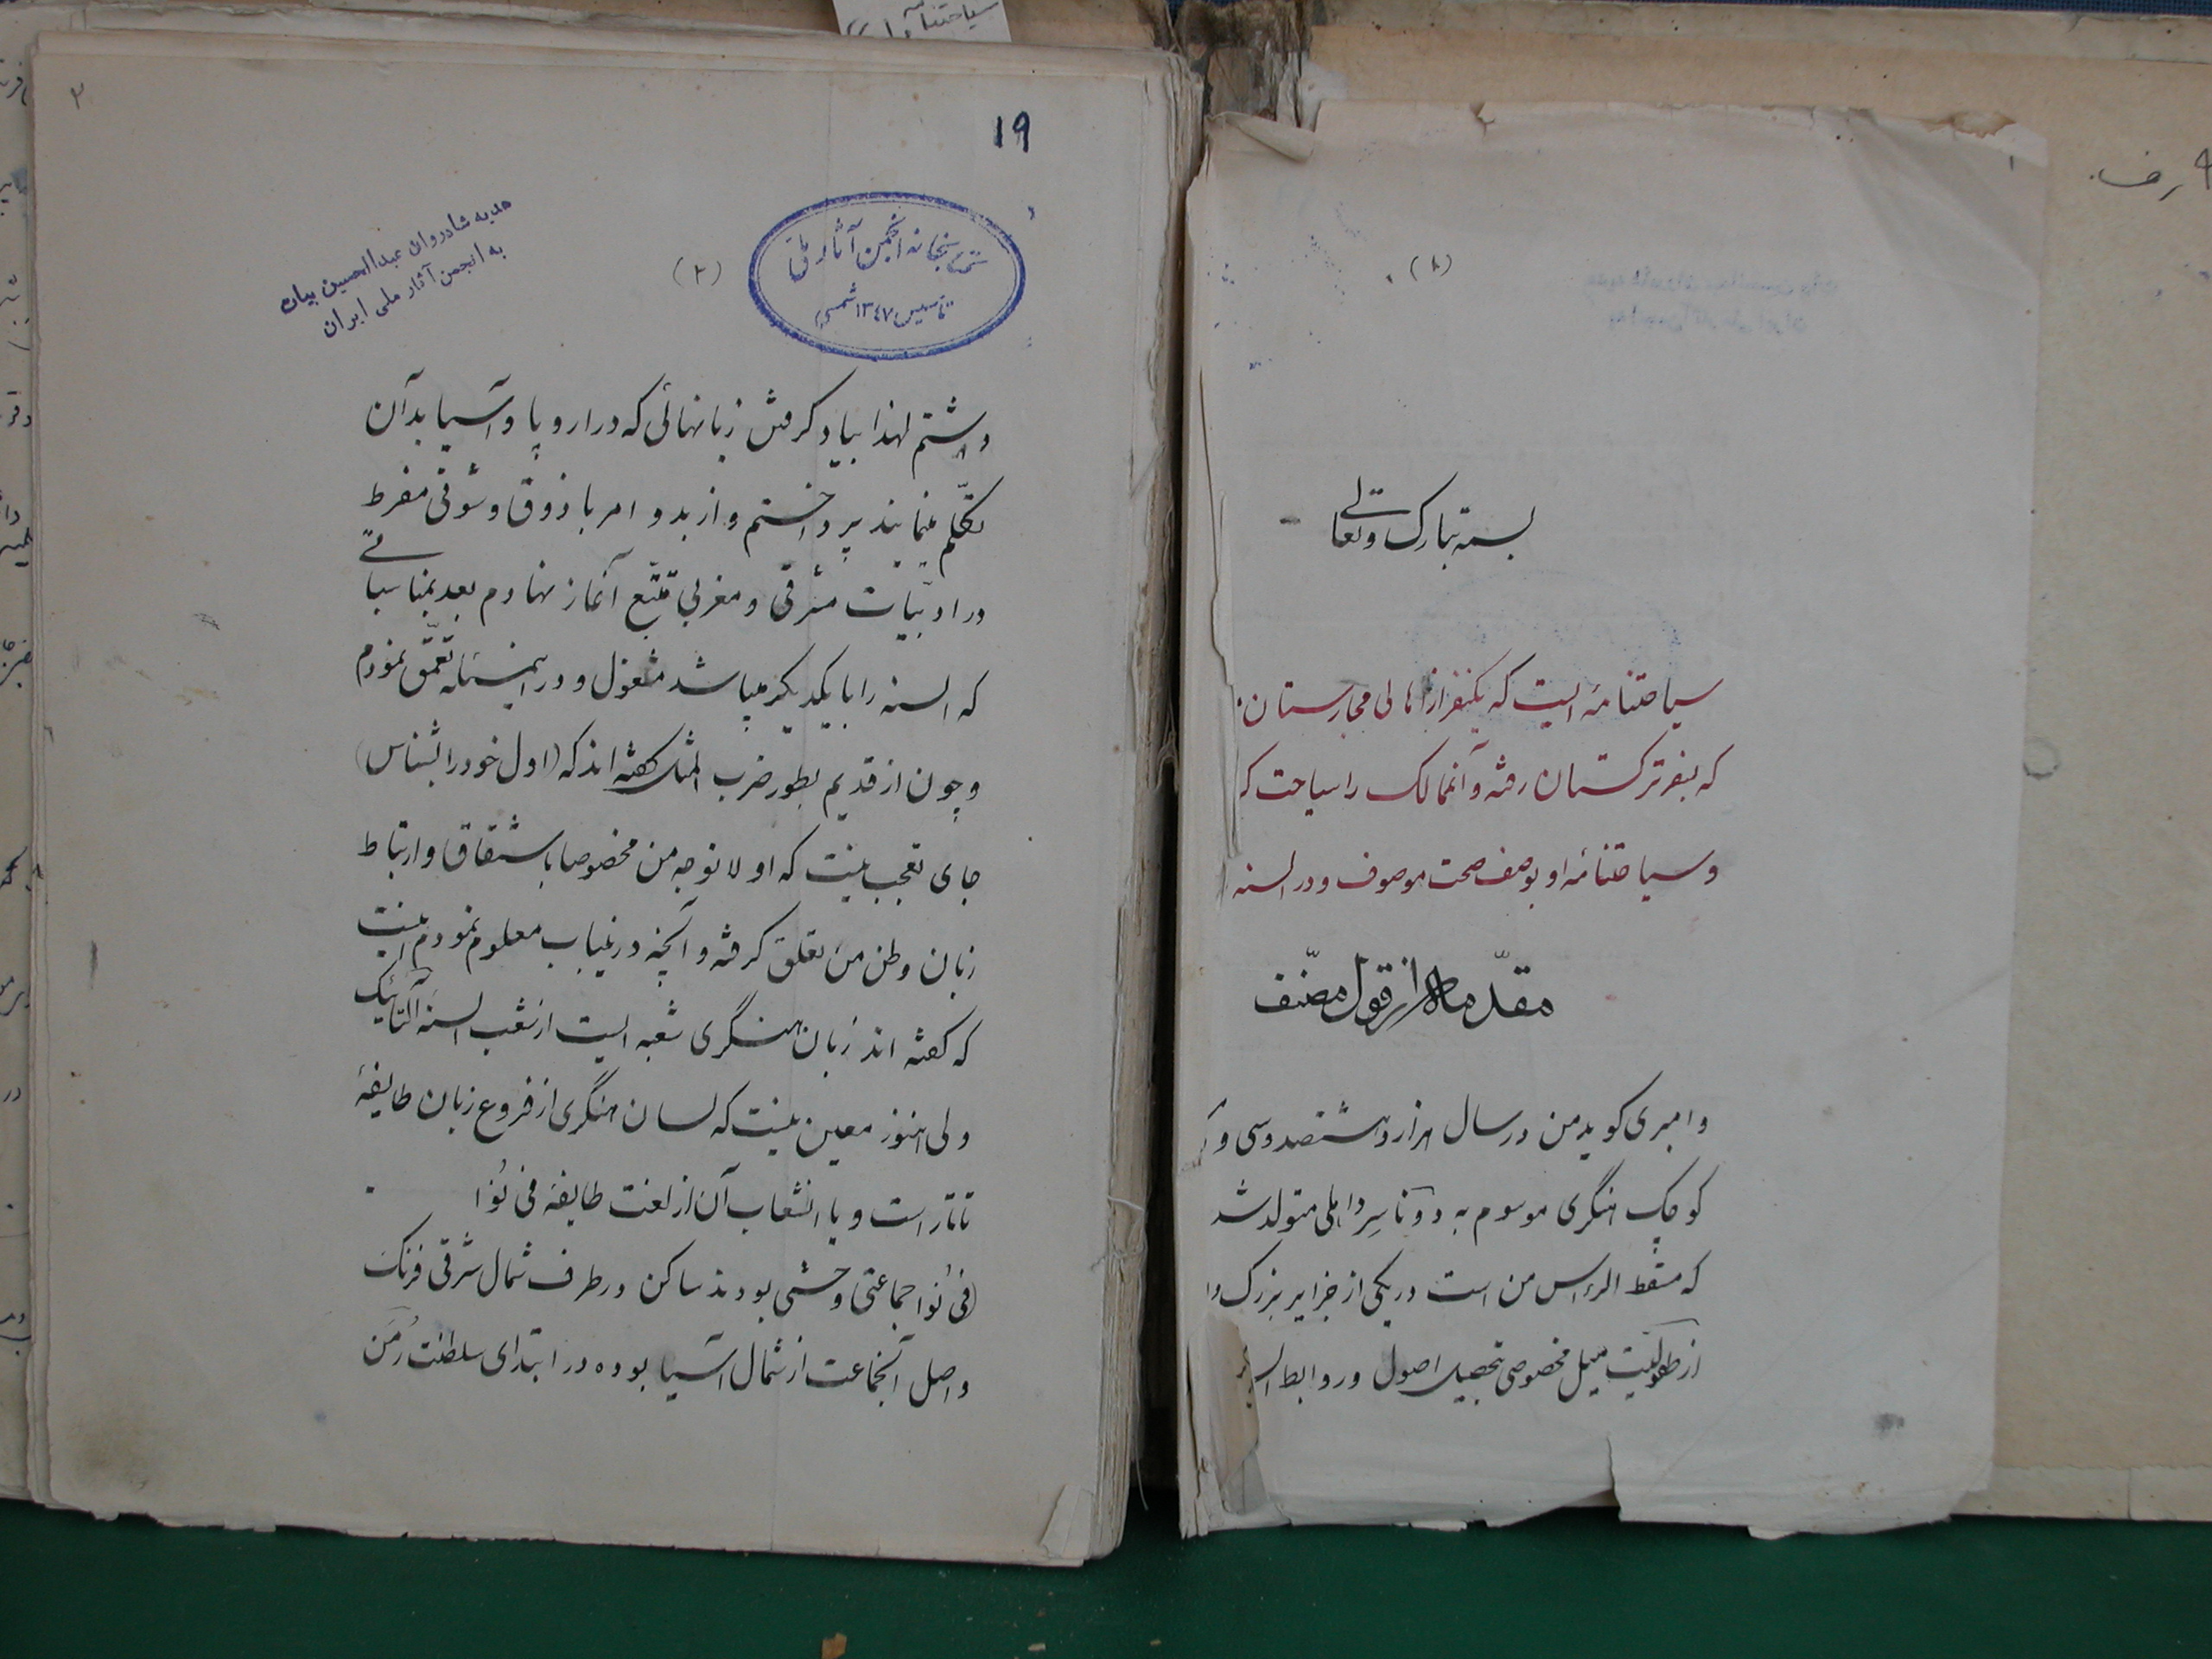 (۱)
بسمه تبارک و تعالی
سیاحتنامه ایست که یکنفر از اهالی مجارستان
که بسفر ترکستان رفته و آنممالک را سیاحت
و سیاحتنامه او بوصف صحت موصوف و در السنه
مقدمه از قول مصنف
وامبری کوید من در سال هزار و هشتصد و سی و
کوچک هنگری موسوم به دوناسرداهلی متولد شد
که مسقط الرأس من است در یکی از جزایر بزرک
از طفولیت میل مخصوصی بتحصیل اصول و روابط
۲
19
هدیه شادروان عبدالحسین بیات
به انجمن آثار ملی ایران
(۲)
کتابخانه انجمن آثار ملی
تاسیس ۱۳۴۷ شمسی
داشتم لهذا بیاد کرفتن زبانهائی که در اروپا و آسیا بدآن
تکلّم مینمایند پرداختم و از بدو امر با ذوق و شوقی مفرط
در ادبیّات مشرقی و مغربی تتبّع آغاز نهادم بعد بمناسباتی
که السنه را با یکدیکر میباشد مشغول و در اینمسئله تعمّق نمودم
و چون از قدیم بطور ضرب المثل کفته اند که (اول خود را بشناس)
جای تعجب نیست که اولا توجه من مخصوصا باشتقاق و ارتباط
زبان وطن من تعلق کرفته و آنچه در اینباب معلوم نمودم اینست
که کفته اند زبان هنگری شعبه ایست از شعب السنه آلتائیک
ولی هنوز معین نیست که لسان هنگری از فروع زبان طایفهٔ
تاتار است و یا انشعاب آن از لغت طایفه فی نُوا
(فی نُوا جماعتی وحشی بودند ساکن در طرف شمال شرقی فرنک
و اصل آنجماعت از شمال آسیا بوده در ابتدای سلطنت رُمَن